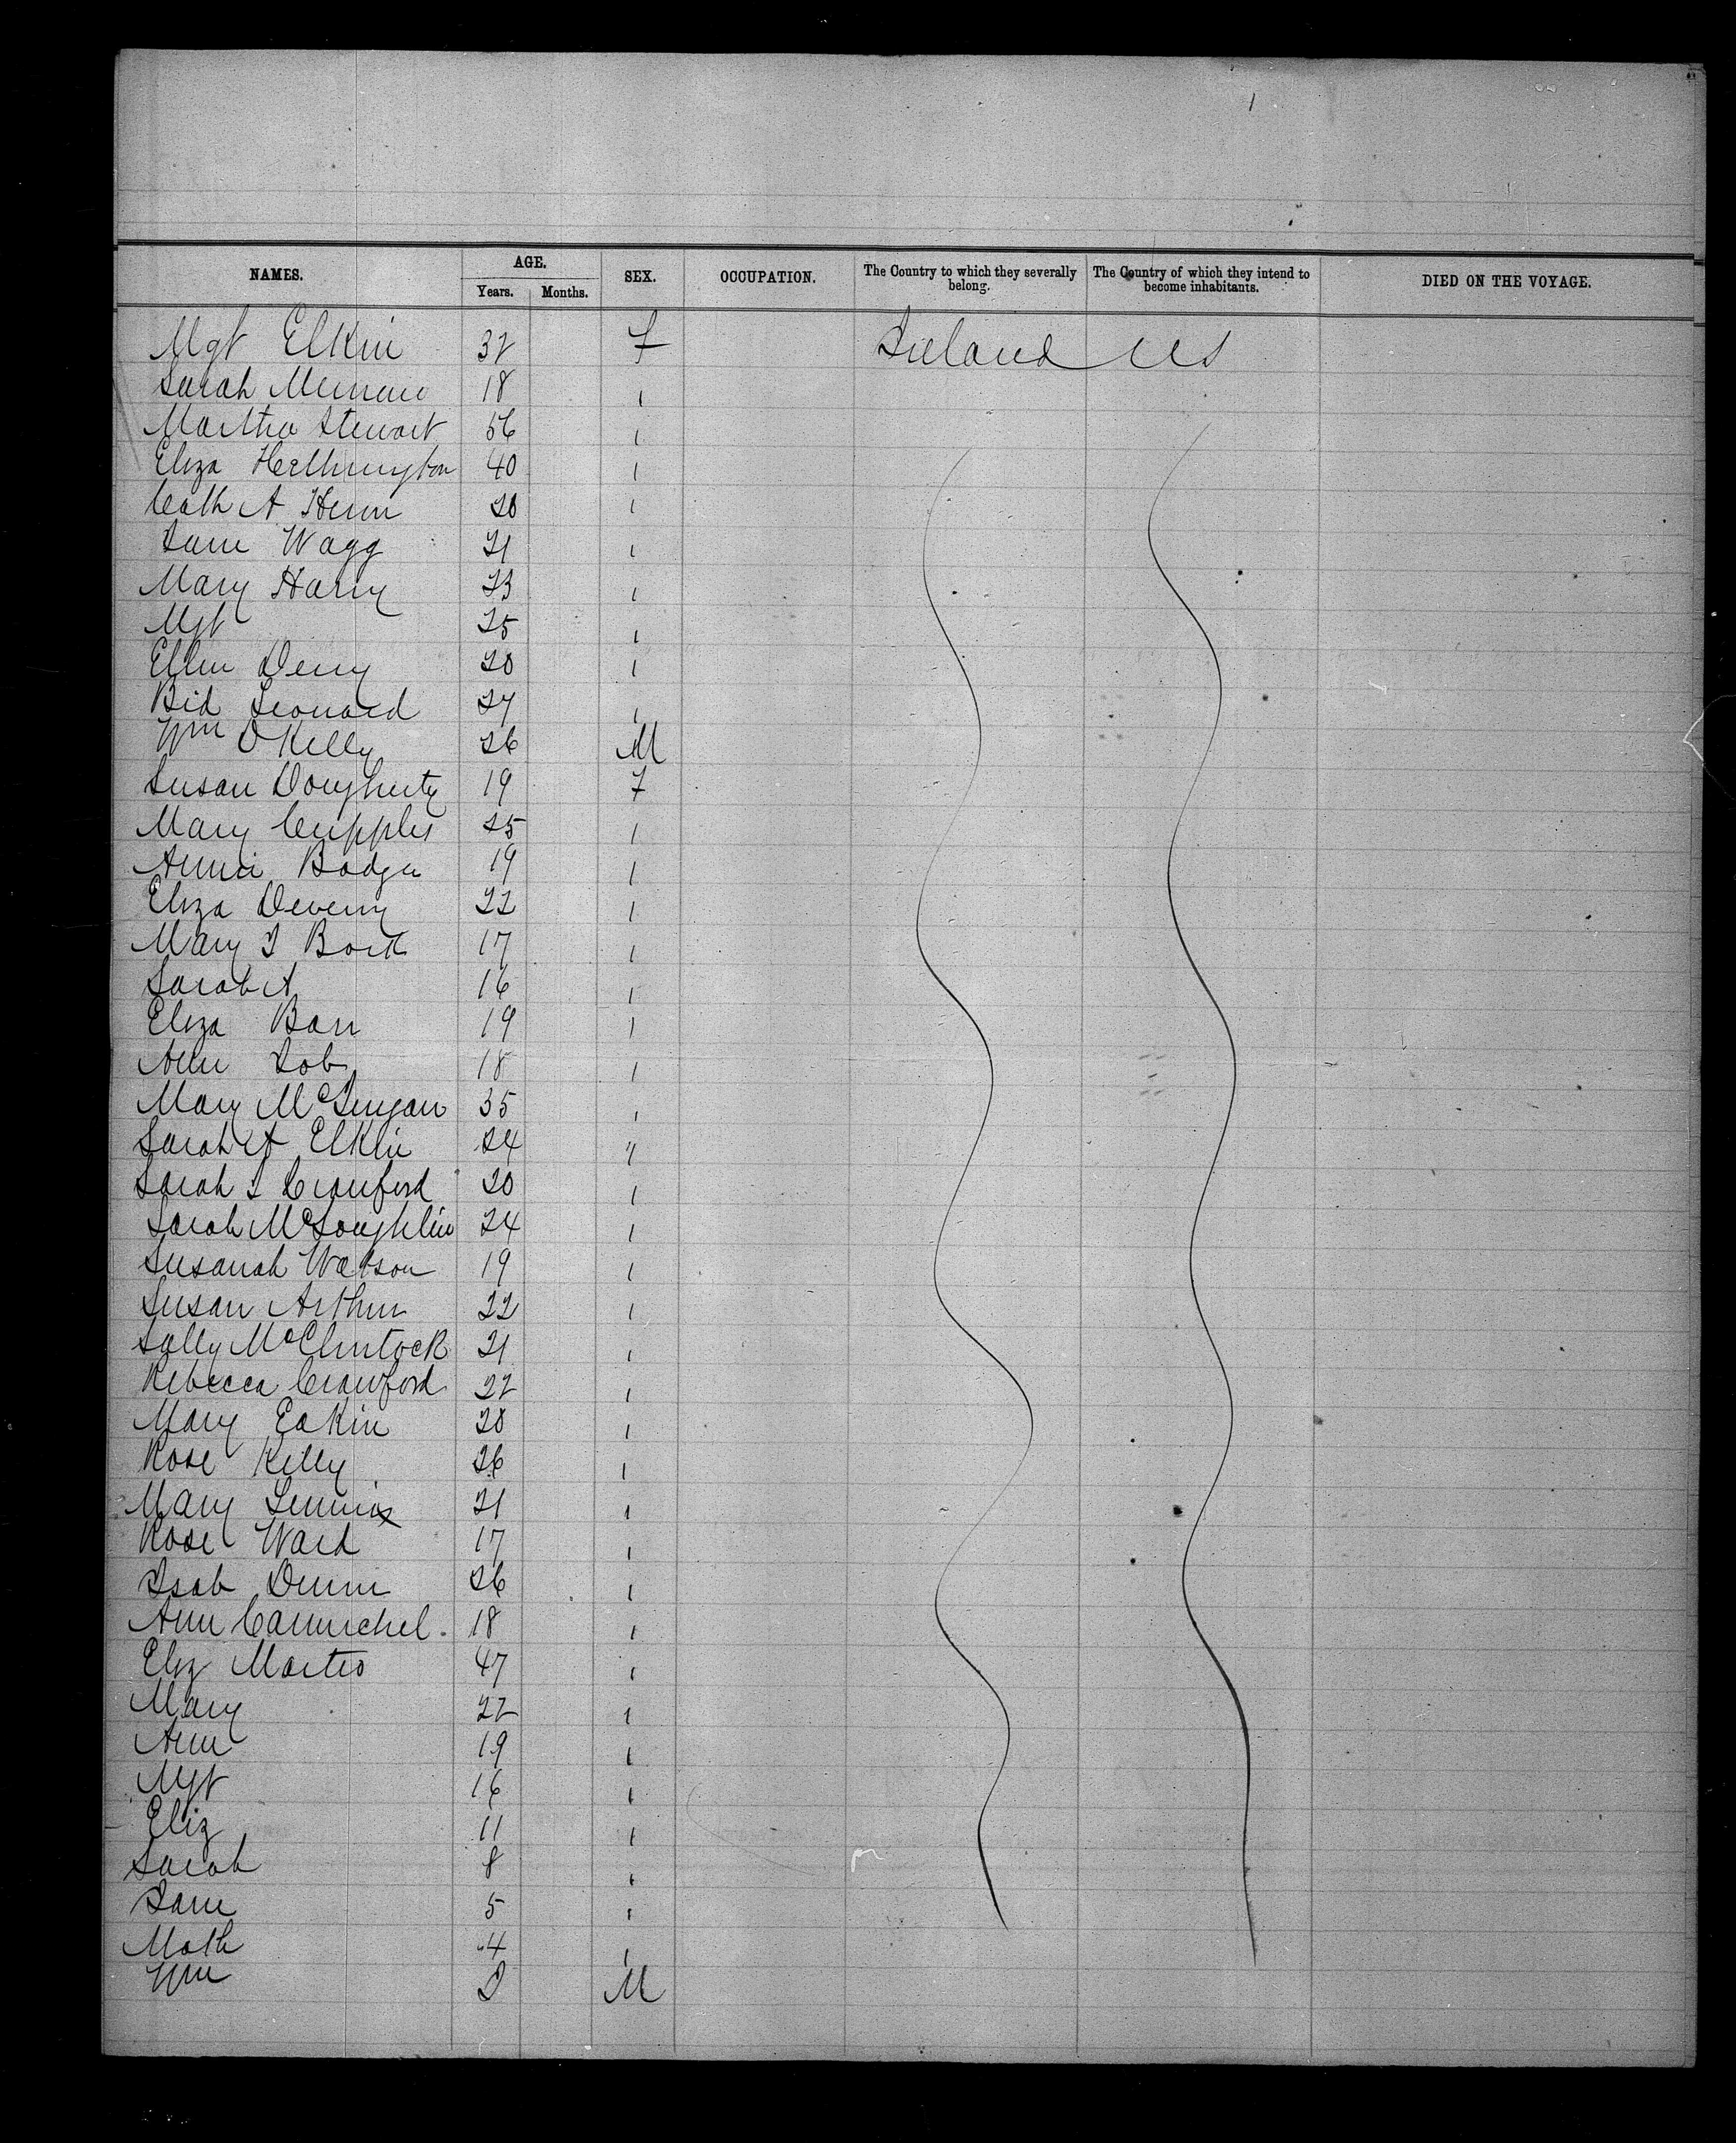 NAMES. AGE. SEX. OCCUPATION. The Country to which they severally belong. The Country of which they intend to become inhabitants. DIED ON THE VOYAGE.
Years. Months.
Mgt Elkin 32 F Ireland US
Sarah 18 "
Martha Stewart 56 "
Eliza Hethrington 40 "
Cath A 20 "
Jane Wagg 21 "
Mary Harry 23 "
Mgt 25 "
Ellen Derry 20 "
Bid Leonard 27 "
Wm O Kelly 26 M
Susan Dougherty 19 F
Mary Cupples 25 "
Annie Badger 19 "
Eliza Deveny 22 "
Mary J 17 "
Sarah A 16 "
Eliza Barr 19 "
Ann Job 18 "
Mary 35 "
Sarah A Elkin 24 "
Sarah J Crawford 20 "
Sarah McLoughlin 24 "
Susanah Watson 19 "
Susan Arthur 22 "
Sally McClintock 21 "
Rebecca Crawford 22 "
Mary Eakin 20 "
Rose Kelly 26 "
Mary Lennix 21 "
Rose Ward 17 "
Isab 26 "
Ann Carmichel 18 "
Eliz 47 "
Mary 22 "
Ann 19 "
Mgt 16 "
Eliz 11 "
Sarah 8 "
Jane 5 "
Math 4 "
Wm 2 M